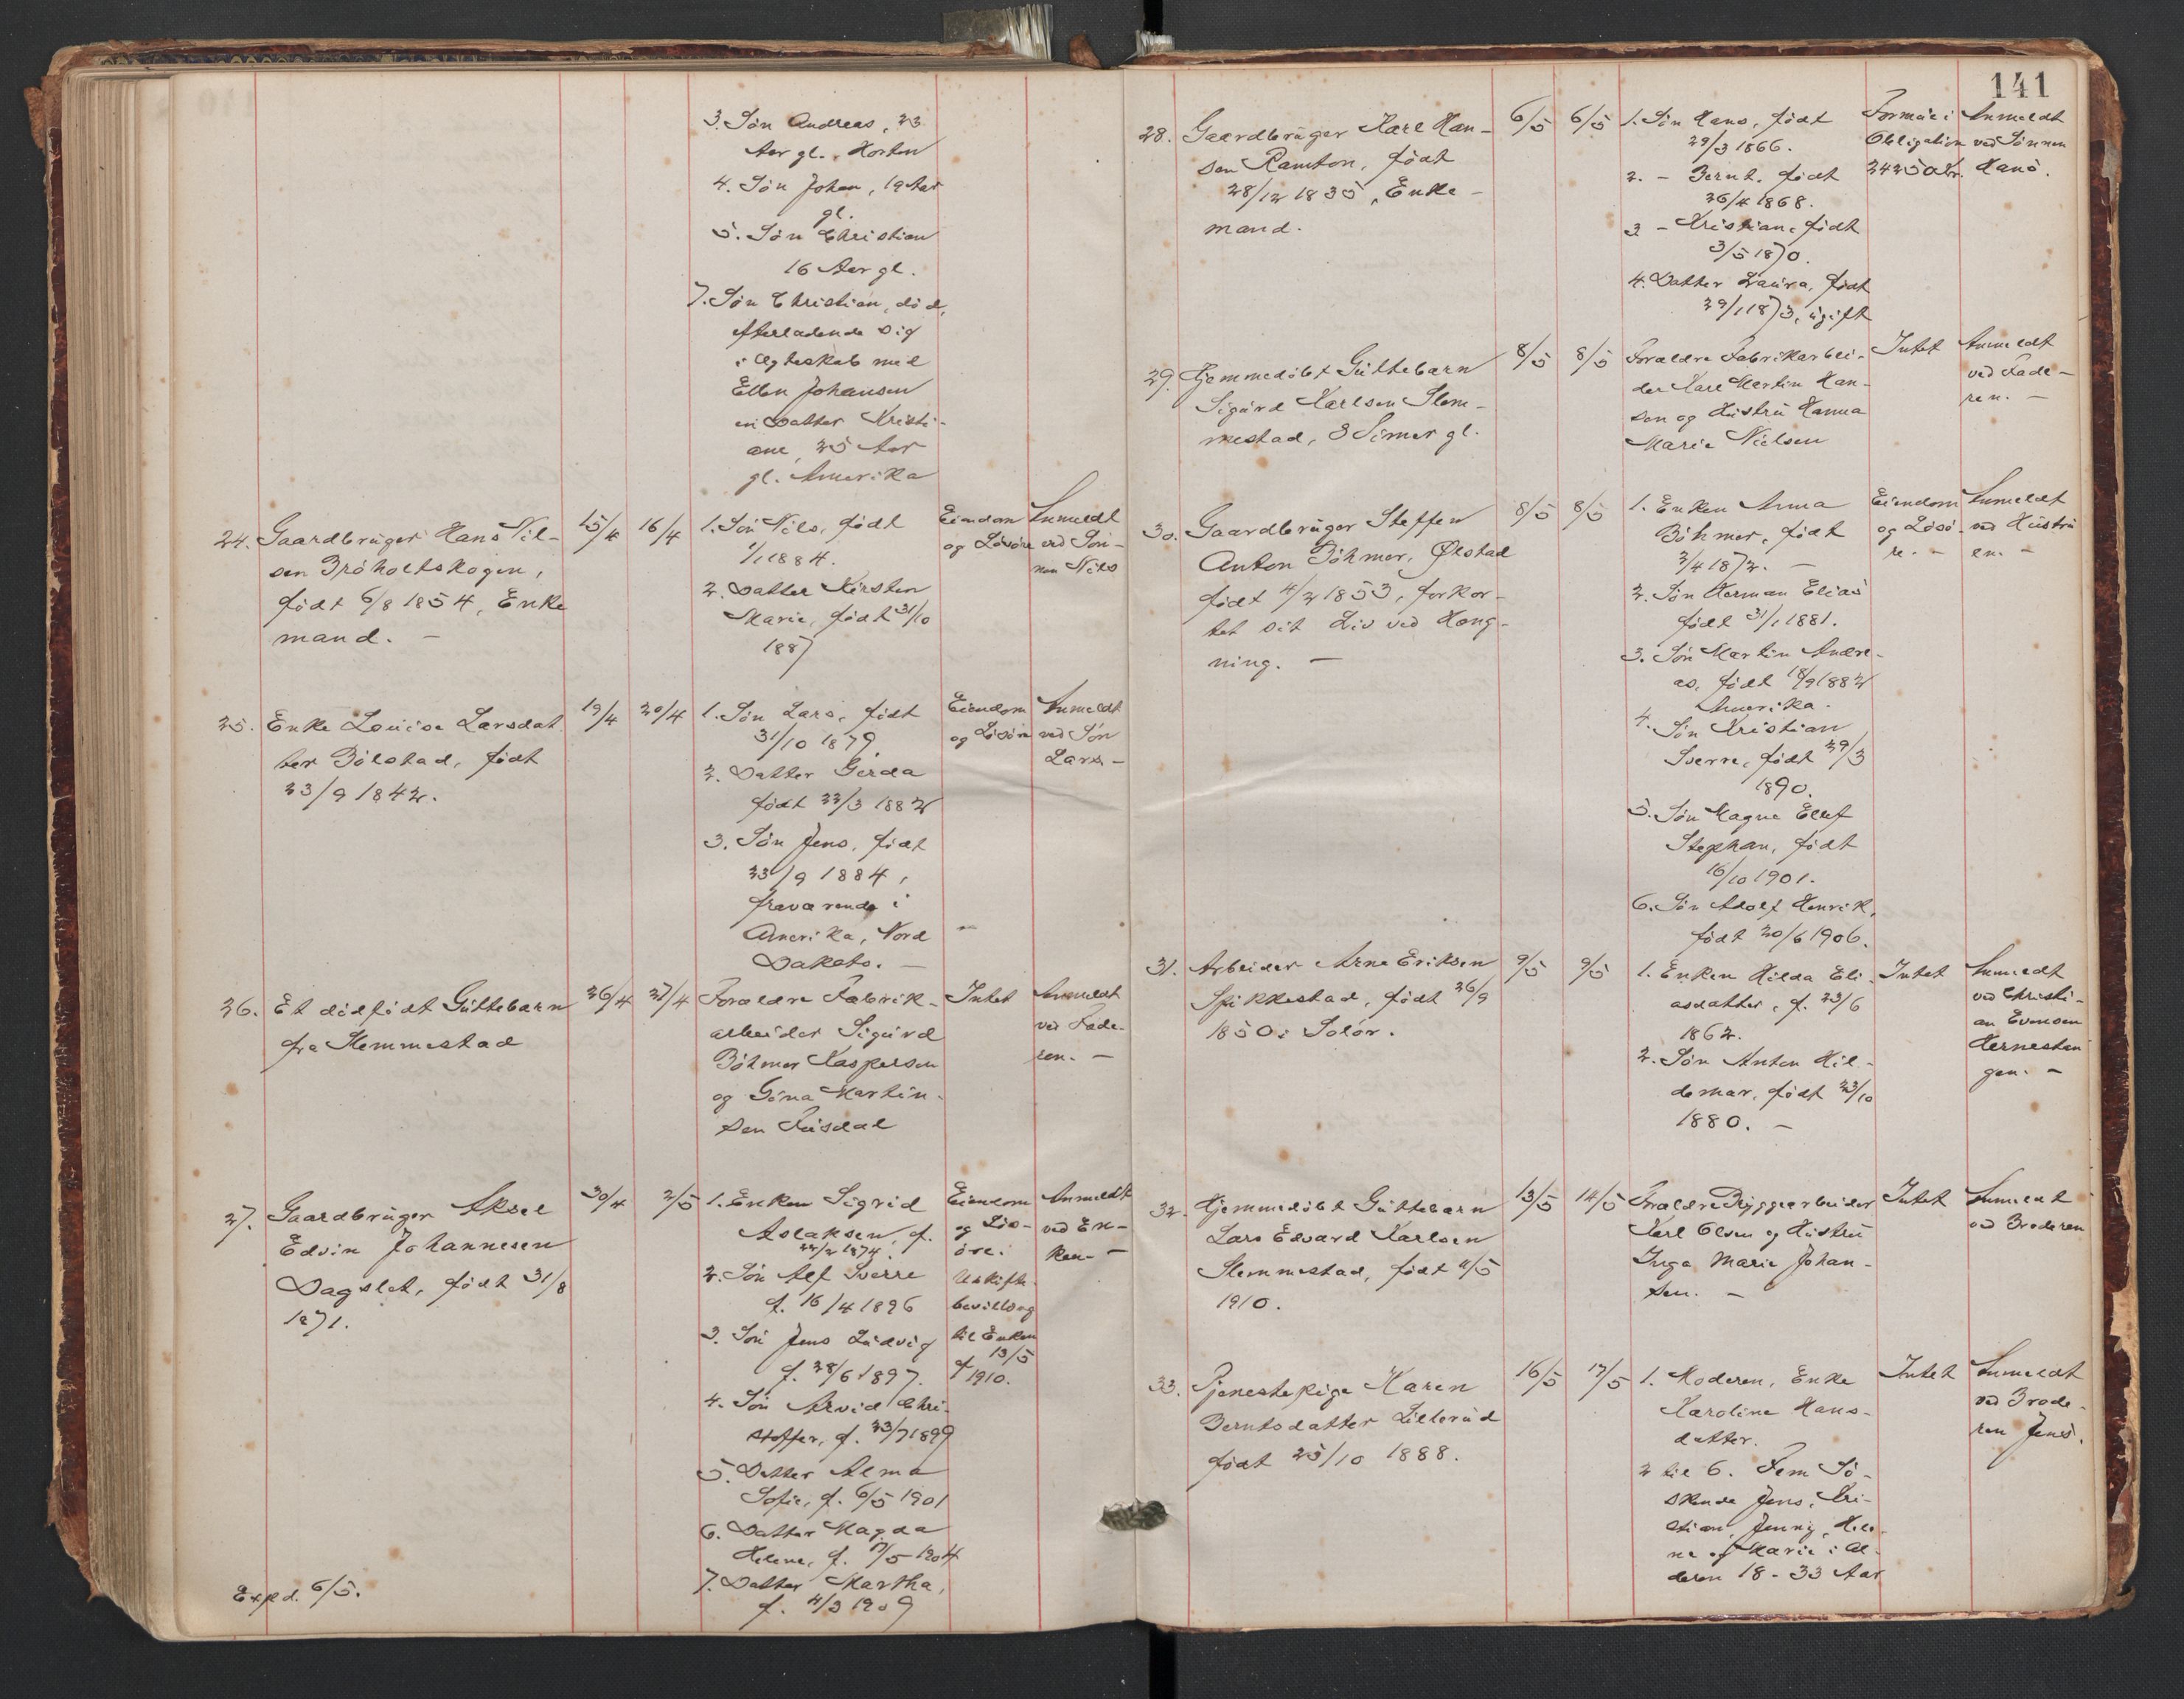 3. Søn Andreas, 23
Aar gl., Horten
4. Søn Johan, 19 Aar
gl.
5. Søn Christian
16 Aar gl.
7. Søn Christian, død,
efterladende sig
i Ægteskab med
Ellen Johansen
en Datter Kristi-
ane, 25 Aar
gl. Amerika
24. Gaardbruger Hans Nil-
sen Bråholtskogen,
født 6/8 1854, Enke
mand. -
15/4
16/4
1. Søn Nils, født
1/1 1884.
2. Datter Kirsten
Marie, født 31/10
1887
Eiendom
og Løsøre
Anmeldt
ved Søn-
nen Nils
25. Enke Louise Larsdat
ter Bölstad, født
23/9 1842.
19/4
20/4
1. Søn Lars, født
31/10 1879.
2. Datter Gerda
født 22/3 1882
3. Søn Jens, født
23/9 1884,
fraværende i
Amerika, Nord
Dakota. -
Eiendom
og Løsøre
Anmeldt
ved Søn
Lars -
26. Et dødfødt Guttebarn
fra Slemmestad
26/4
27/4
Forældre Fabrik-
arbeider Sigurd
Böhmer Kaspersen
og Gina Martin-
sen Rusdal
Intet
Anmeldt
ved Fade-
ren. -
27. Gaardbruger Aksel
Edvin Johannesen
Dagslet, født 31/8
1871.
Expd. 6/5.
30/4
2/5
1. Enken Sigrid
Aslaksen, f.
22/2 1874.
2. Søn Alf Sverre
f. 16/4 1896
3. Søn Jens Ludvig
f. 28/6 1897.
4. Søn Arvid Chri-
stoffer, f. 23/7 1899
5. Datter Alma
Sofie, f. 6/5 1901
6. Datter Magda
Helene, f. 7/5 1904
7. Datter Martha,
f. 4/3 1909
Eiendom
og Løs-
øre.
Uskifte-
bevilling
til Enken
af 13/5
1910.
Anmeldt
ved En-
ken. -
141
28. Gaardbruger Karl Han-
sen Ramton, født
28/12 1835, Enke-
mand.
6/5
6/5
1. Søn Hans, født
29/3 1866.
2. - Bernt, født
26/4 1868.
3 - Kristian, født
3/5 1870.
4. Datter Laura, født
29/1 1873, ugift
Formue i
Obligation
2425 Kr.
Anmeldt
ved Sønnen
Hans.
29. Hjemmedøbt Guttebarn
Sigurd Karlsen Slem-
mestad, 3 Timer gl.
8/5
8/5
Forældre Fabrikarbei-
der Karl Martin Han-
sen og Hustru Hanna
Marie Nielsen
Intet
Anmeldt
ved Fade-
ren. -
30. Gaardbruger Steffen
Anton Böhmer, Ølstad
født 4/2 1853, forkor-
tet sit Liv ved Hæng-
ning. -
8/5
8/5
1. Enken Anna
Böhmer, født
2/4 1872. -
2. Søn Herman Elias
født 31/1 1881.
3. Søn Martin Andre-
as, født 18/9 1882
Amerika.
4. Søn Kristian
Sverre, født 29/3
1890.
5. Søn Magne Ellef
Stephan, født
16/10 1901.
6. Søn Adolf Henrik,
født 20/6 1906.
Eiendom
og Løsø-
re. -
Anmeldt
ved Hustru
en. -
31. Arbeider Arne Eriksen
Spikkestad, født 26/9
1850 i Solør.
9/5
9/5
1. Enken Hilda Eli-
asdatter, f. 23/6
1862.
2. Søn Anton Hil-
demar, født 23/10
1880. -
Intet
Anmeldt
ved Christi-
an Evensen
Hernestan
gen. -
32. Hjemmedøbt Guttebarn
Lars Edvard Karlsen
Slemmestad, født 11/5
1910.
13/5
14/5
Forældre Bryggearbeider
Karl Olsen og Hustru
Inga Marie Johan-
sen. -
Intet
Anmeldt
ved Broderen
33. Tjenestepige Karen
Berntsdatter Lillerud
født 25/10 1888.
16/5
17/5
1. Moderen, Enke
Karoline Hans-
datter.
2 til 6. Fem Sø-
skende Jens, Kri-
stian, Jenny, Hele-
ne og Marie i Al-
deren 18-33 Aar
Intet
Anmeldt
ved Brode-
ren Jens.